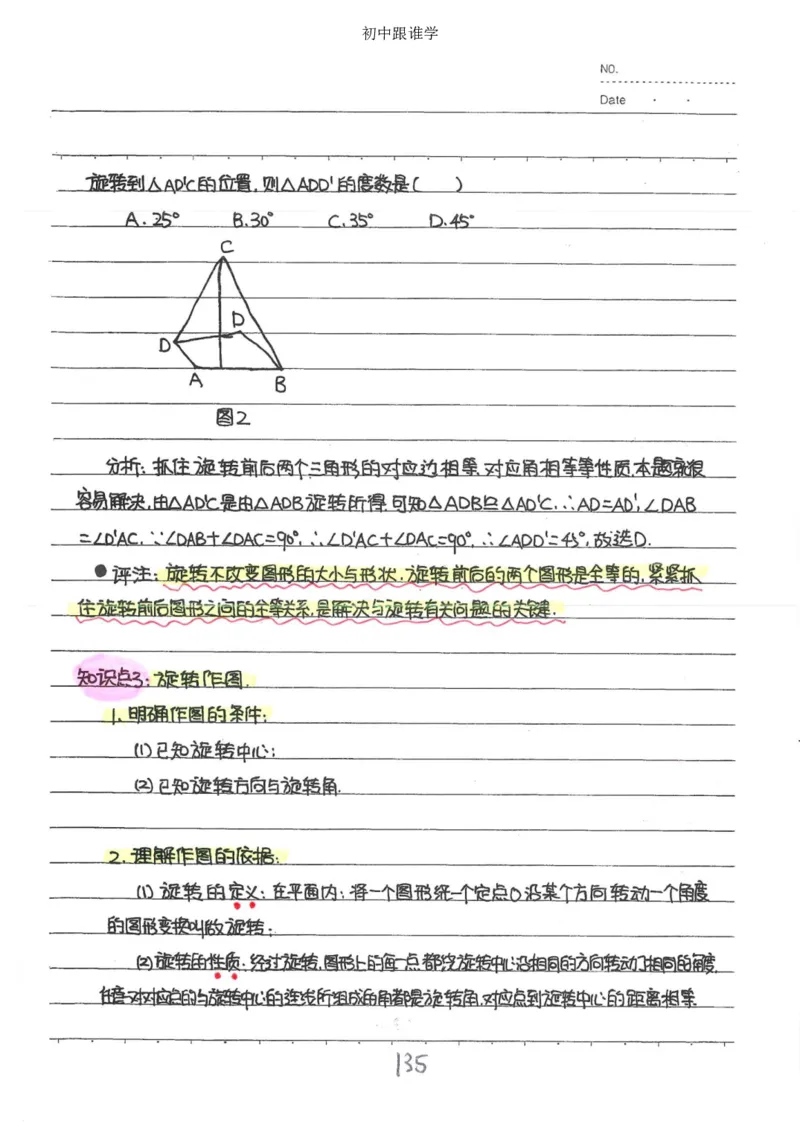 初中跟谁学
NO.
Date · ·
旋转到△AD'C的位置,则△ADD'的度数是( )
A.25° B.30° C.35° D.45°
C
D
D
A
B
图2
分析:抓住旋转前后两个三角形的对应边相等、对应角相等等性质,本题就很
容易解决,由△AD'C是由△ADB旋转所得,可知△ADB≌△AD'C,∴AD=AD',∠DAB
=∠D'AC,∵∠DAB+∠DAC=90°,∴∠D'AC+∠DAC=90°,∴∠ADD'=45°,故选D.
●评注:旋转不改变图形的大小与形状,旋转前后的两个图形是全等的,紧紧抓
住旋转前后图形之间的全等关系,是解决与旋转有关问题的关键.
知识点3:旋转作图.
1.明确作图的条件:
(1)已知旋转中心;
(2)已知旋转方向与旋转角.
2.理解作图的依据:
(1)旋转的定义:在平面内;将一个图形绕一个定点O沿某个方向转动一个角度
的图形变换叫做旋转;
(2)旋转的性质:经过旋转,图形上的每一点都绕旋转中心沿相同的方向转动了相同的角度,
任意一对对应点的与旋转中心的连线所组成的角都是旋转角,对应点到旋转中心的距离相等.
135